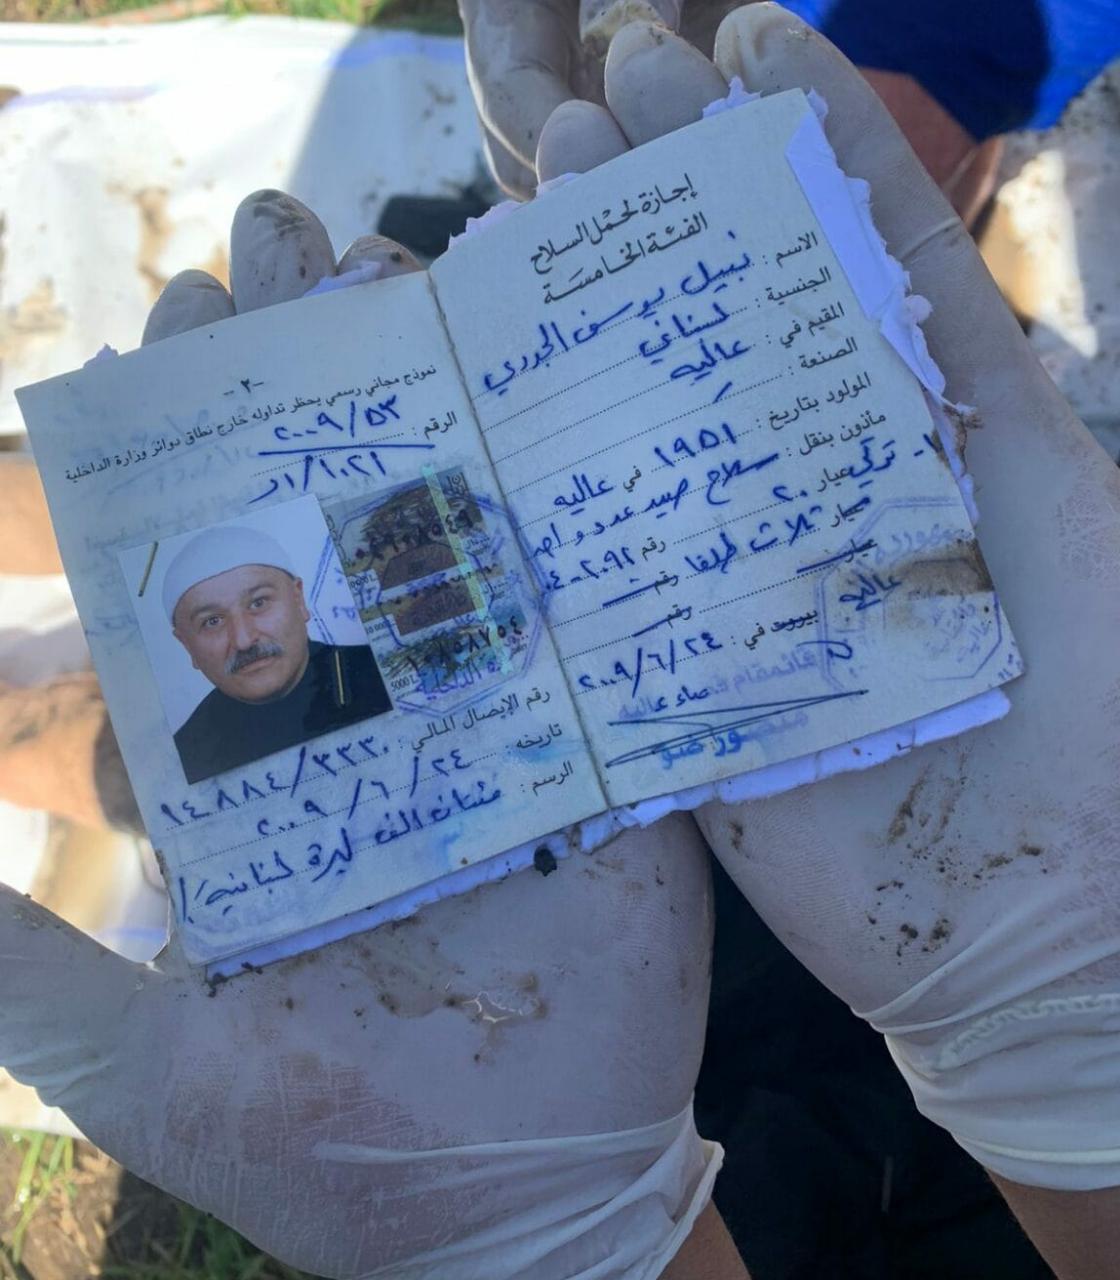 إجازة لحمل السلاح
الفئة الخامسة
الاسم : نبيل يوسف الجردي
الجنسية : لبناني
المقيم في : عاليه
الصنعة :
المولود بتاريخ : ١٩٥١ في عاليه
مأذون بنقل : سلاح صيد عدد واحد
١- تركي عيار ٢٠ رقم
عيار ثلاث طلقات رقم
عيار رقم
بيروت في : ٢٠٠٩/٦/٢٤
عاليه
قائمقام قضاء عاليه
منصور ضو
-٢-
نموذج مجاني رسمي يحظر تداوله خارج نطاق دوائر وزارة الداخلية
الرقم : ٢٠٠٩/٥٣
5000L
رقم الإيصال المالي : ١٤٨٨٤/٣٣٣٠
تاريخه : ٢٠٠٩/٦/٢٤
الرسم : مئتان الف ليرة لبنانية/